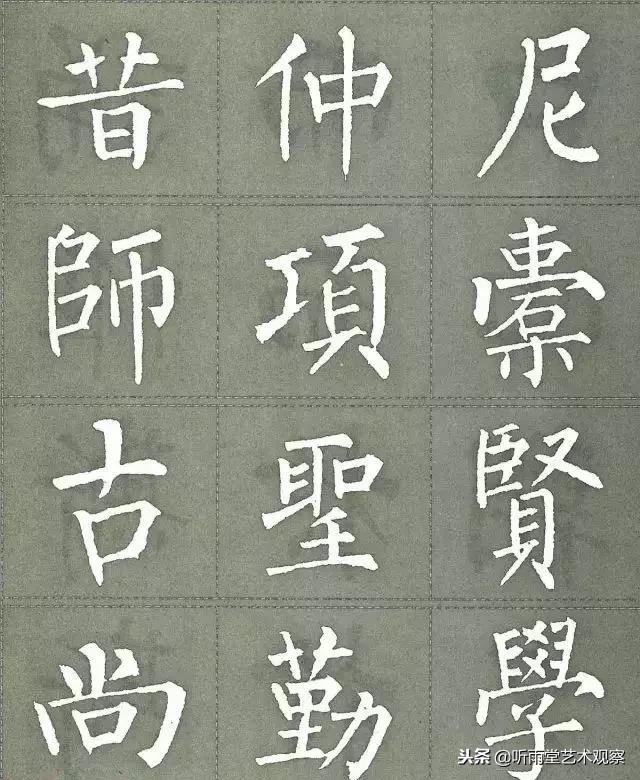 昔仲尼
師項橐
古聖賢
尚勤學
头条 @听雨堂艺术观察